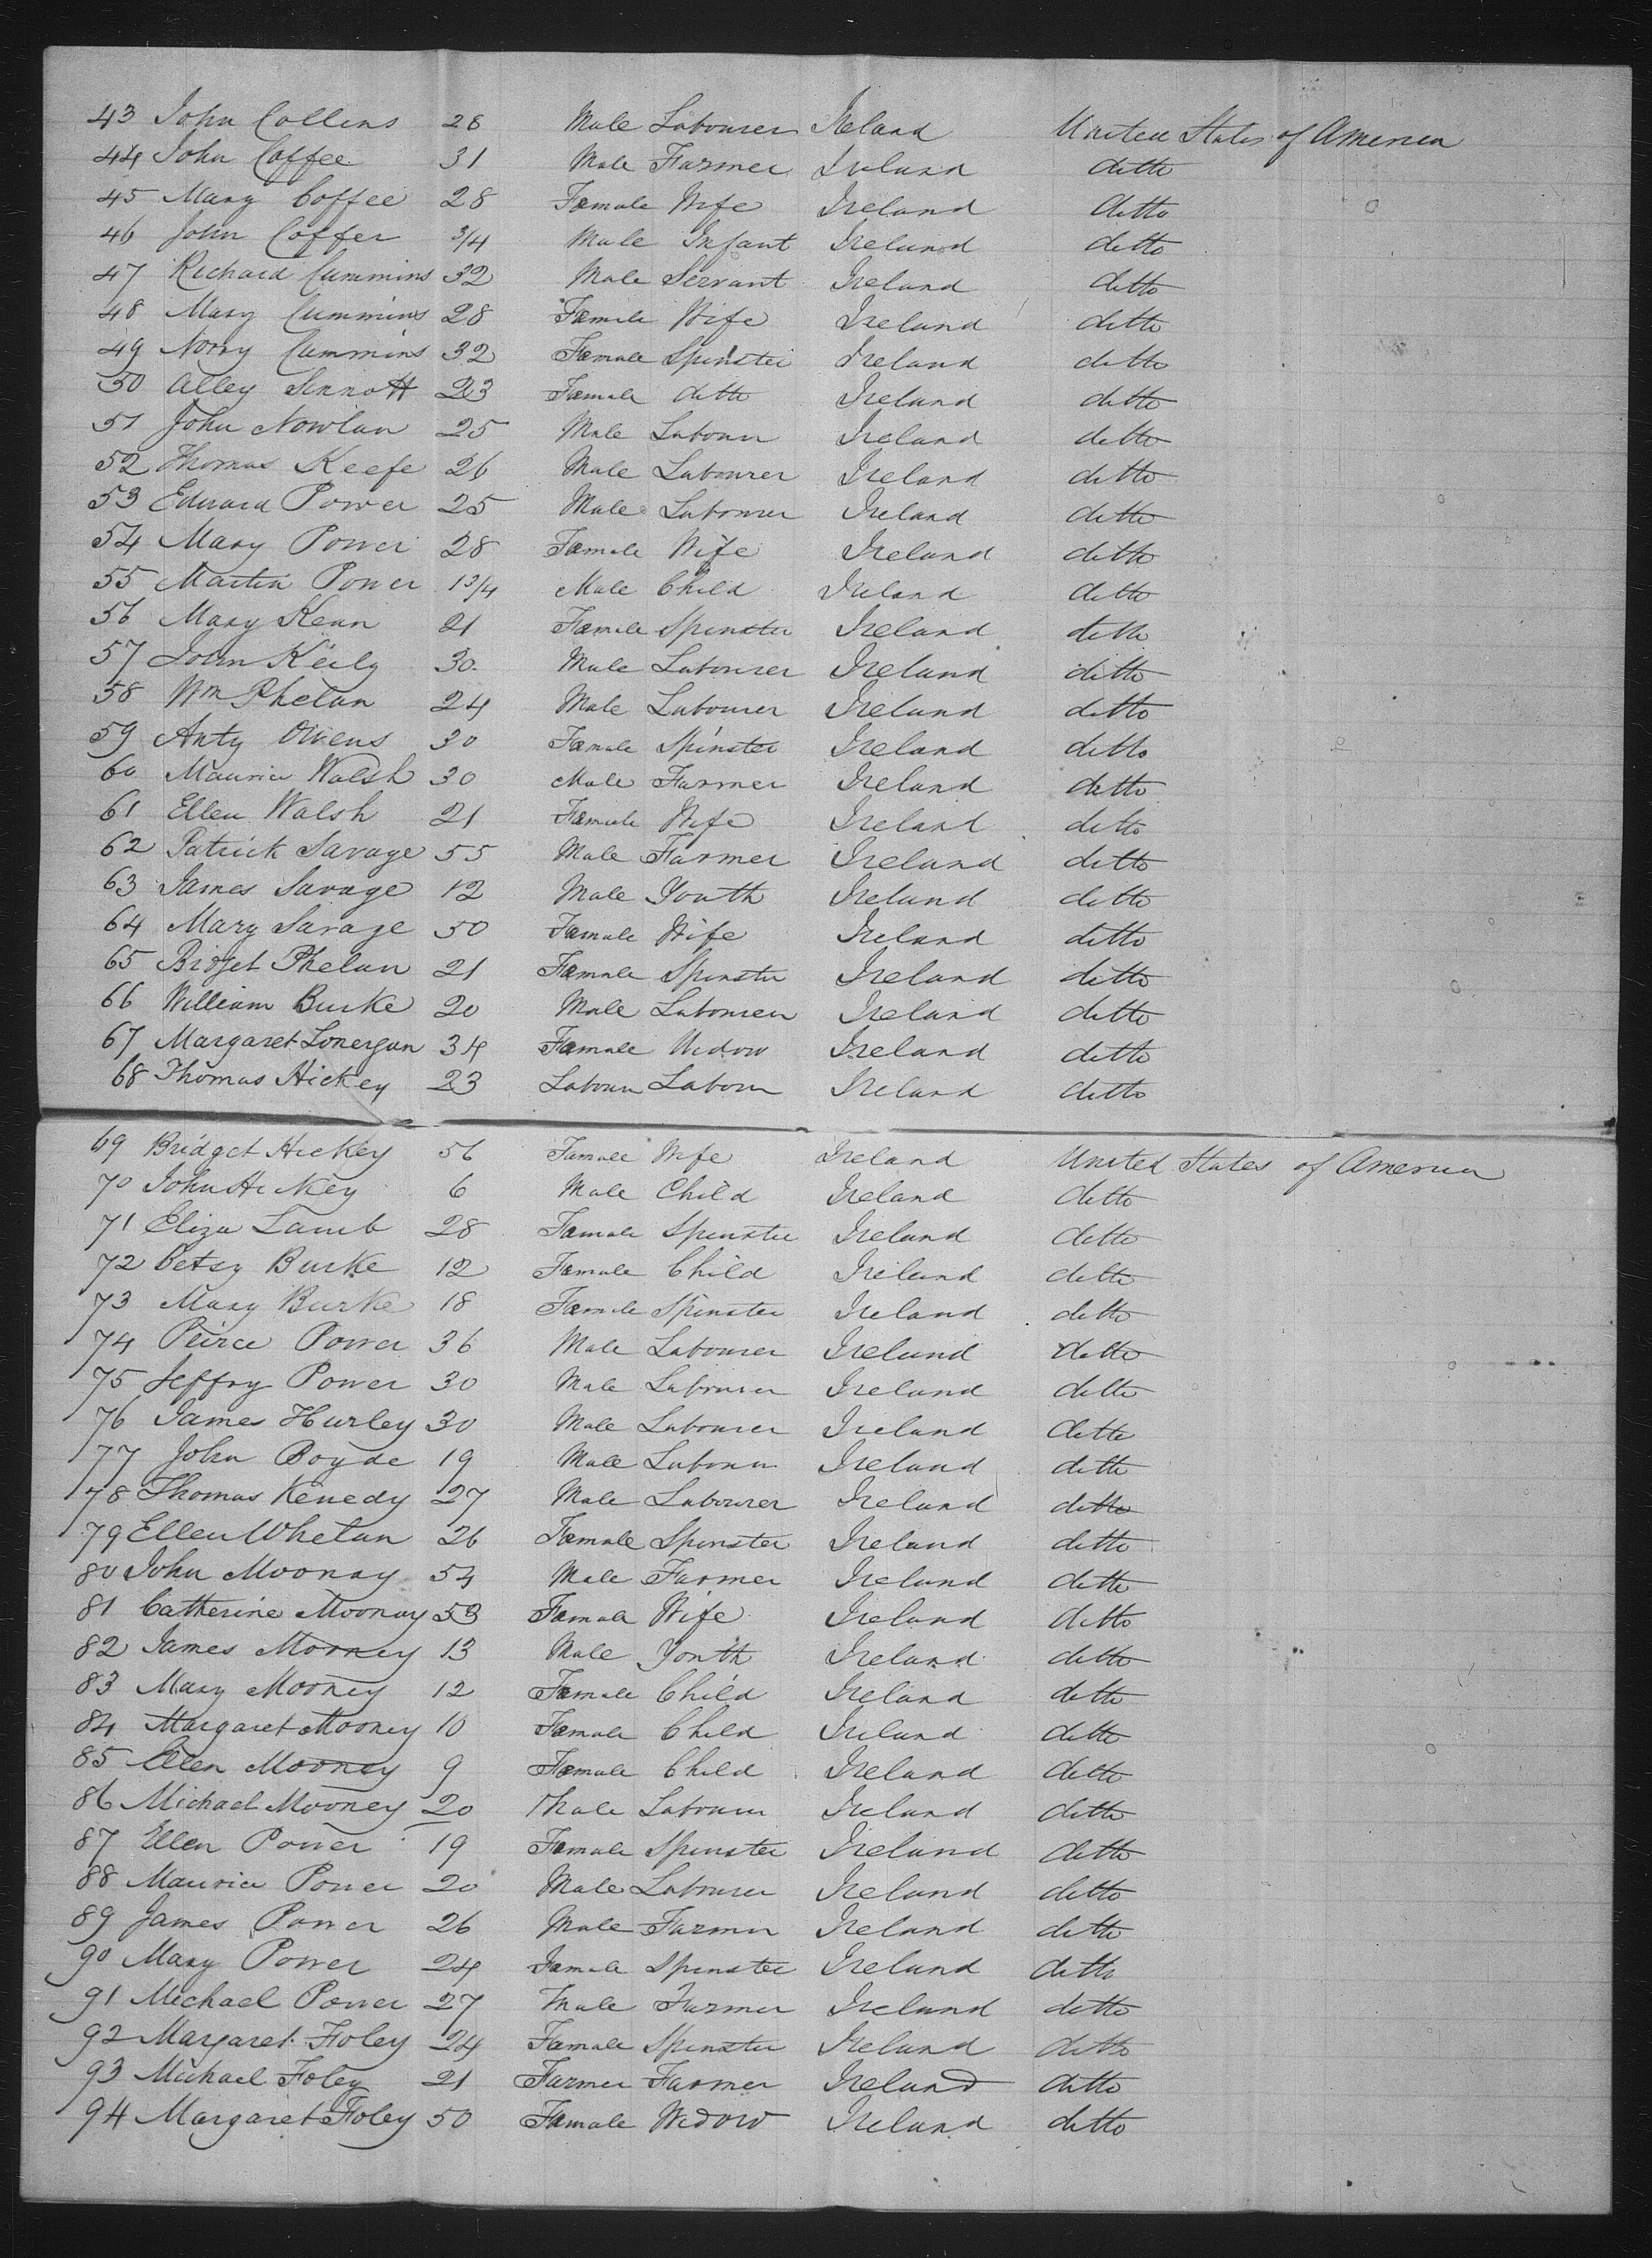 43 John Collins 28 Male Labourer Ireland United States of America
44 John Coffee 31 Male Farmer Ireland ditto
45 Mary Coffee 28 Female Wife Ireland ditto
46 John Coffer 3/4 Male Infant Ireland ditto
47 Richard Cummins 32 Male Servant Ireland ditto
48 Mary Cummins 28 Female Wife Ireland ditto
49 Norry Cummins 32 Female Spinster Ireland ditto
50 Alley Sinnott 23 Female ditto Ireland ditto
51 John Nowlan 25 Male Labour Ireland ditto
52 Thomas Keefe 26 Male Labourer Ireland ditto
53 Edward Power 25 Male Labourer Ireland ditto
54 Mary Power 28 Female Wife Ireland ditto
55 Martin Power 1 3/4 Male Child Ireland ditto
56 Mary Kean 21 Female Spinster Ireland ditto
57 John Keily 30 Male Labourer Ireland ditto
58 Wm Phelan 24 Male Labourer Ireland ditto
59 Anty Owens 30 Female Spinster Ireland ditto
60 Maurice Walsh 30 Male Farmer Ireland ditto
61 Ellen Walsh 21 Female Wife Ireland ditto
62 Patrick Savage 55 Male Farmer Ireland ditto
63 James Savage 12 Male Youth Ireland ditto
64 Mary Savage 50 Female Wife Ireland ditto
65 Bridget Phelan 21 Female Spinster Ireland ditto
66 William Burke 20 Male Labourer Ireland ditto
67 Margaret Lonergan 34 Female Widow Ireland ditto
68 Thomas Hickey 23 Labour Labour Ireland ditto
69 Bridget Hickey 56 Female Wife Ireland United States of America
70 John Hickey 6 Male Child Ireland ditto
71 Eliza Lamb 28 Female Spinster Ireland ditto
72 Betsy Burke 12 Female Child Ireland ditto
73 Mary Burke 18 Female Spinster Ireland ditto
74 Peirce Power 36 Male Labourer Ireland ditto
75 Jeffry Power 30 Male Labourer Ireland ditto
76 James Hurley 30 Male Labourer Ireland ditto
77 John Boyde 19 Male Labour Ireland ditto
78 Thomas Kenedy 27 Male Labourer Ireland ditto
79 Ellen Whelan 26 Female Spinster Ireland ditto
80 John Moonay 54 Male Farmer Ireland ditto
81 Catherine Moonay 53 Female Wife Ireland ditto
82 James Mooney 13 Male Youth Ireland ditto
83 Mary Mooney 12 Female Child Ireland ditto
84 Margaret Mooney 10 Female Child Ireland ditto
85 Ellen Mooney 9 Female Child Ireland ditto
86 Michael Mooney 20 Male Labourer Ireland ditto
87 Ellen Power 19 Female Spinster Ireland ditto
88 Maurice Power 20 Male Labourer Ireland ditto
89 James Power 26 Male Farmer Ireland ditto
90 Mary Power 24 Female Spinster Ireland ditto
91 Michael Power 27 Male Farmer Ireland ditto
92 Margaret Foley 24 Female Spinster Ireland ditto
93 Michael Foley 21 Farmer Farmer Ireland ditto
94 Margaret Foley 50 Female Widow Ireland ditto